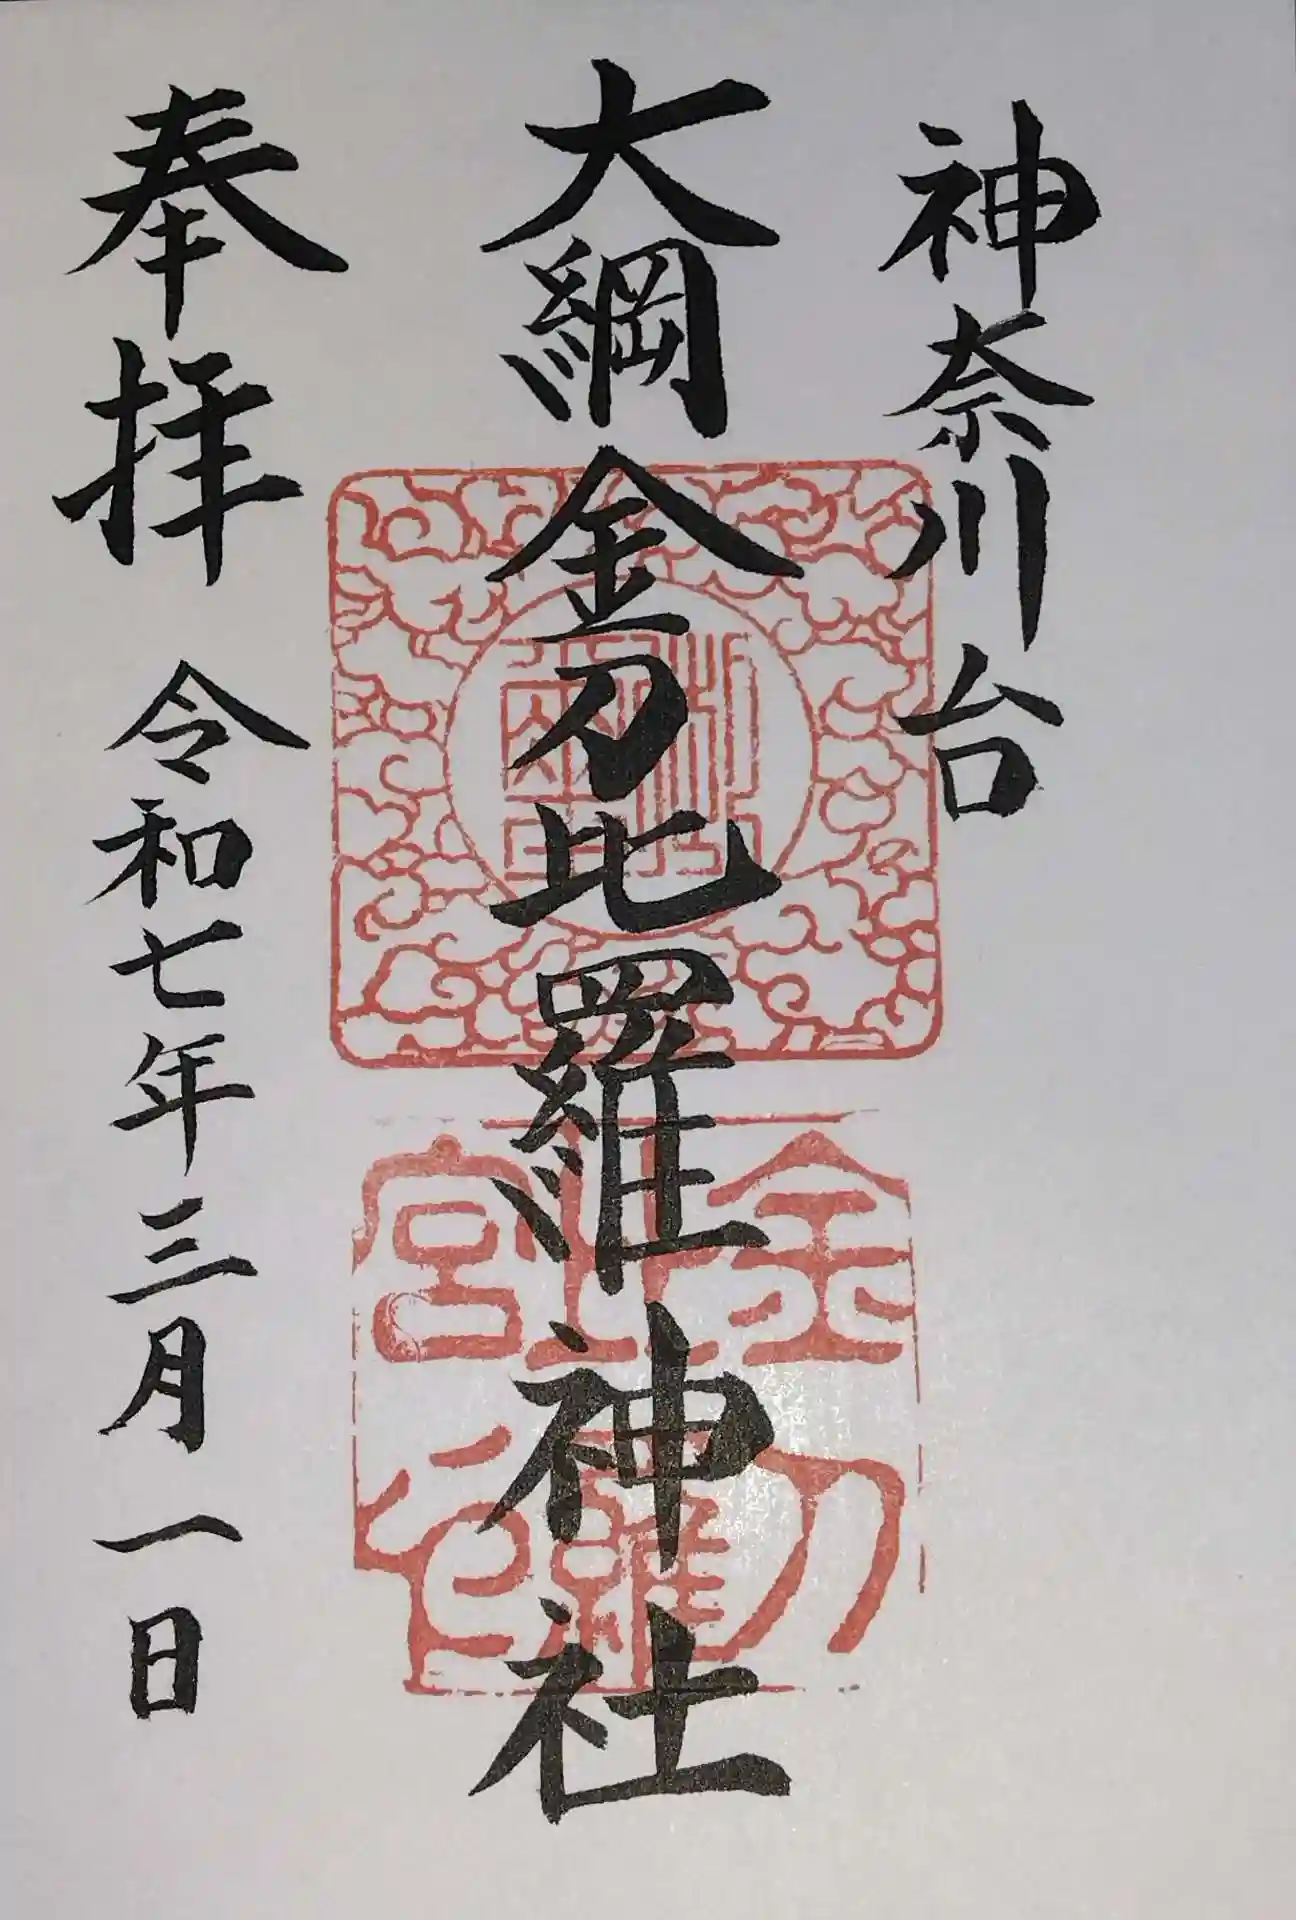 神奈川台
大綱金刀比羅神社
奉拝 令和七年三月一日